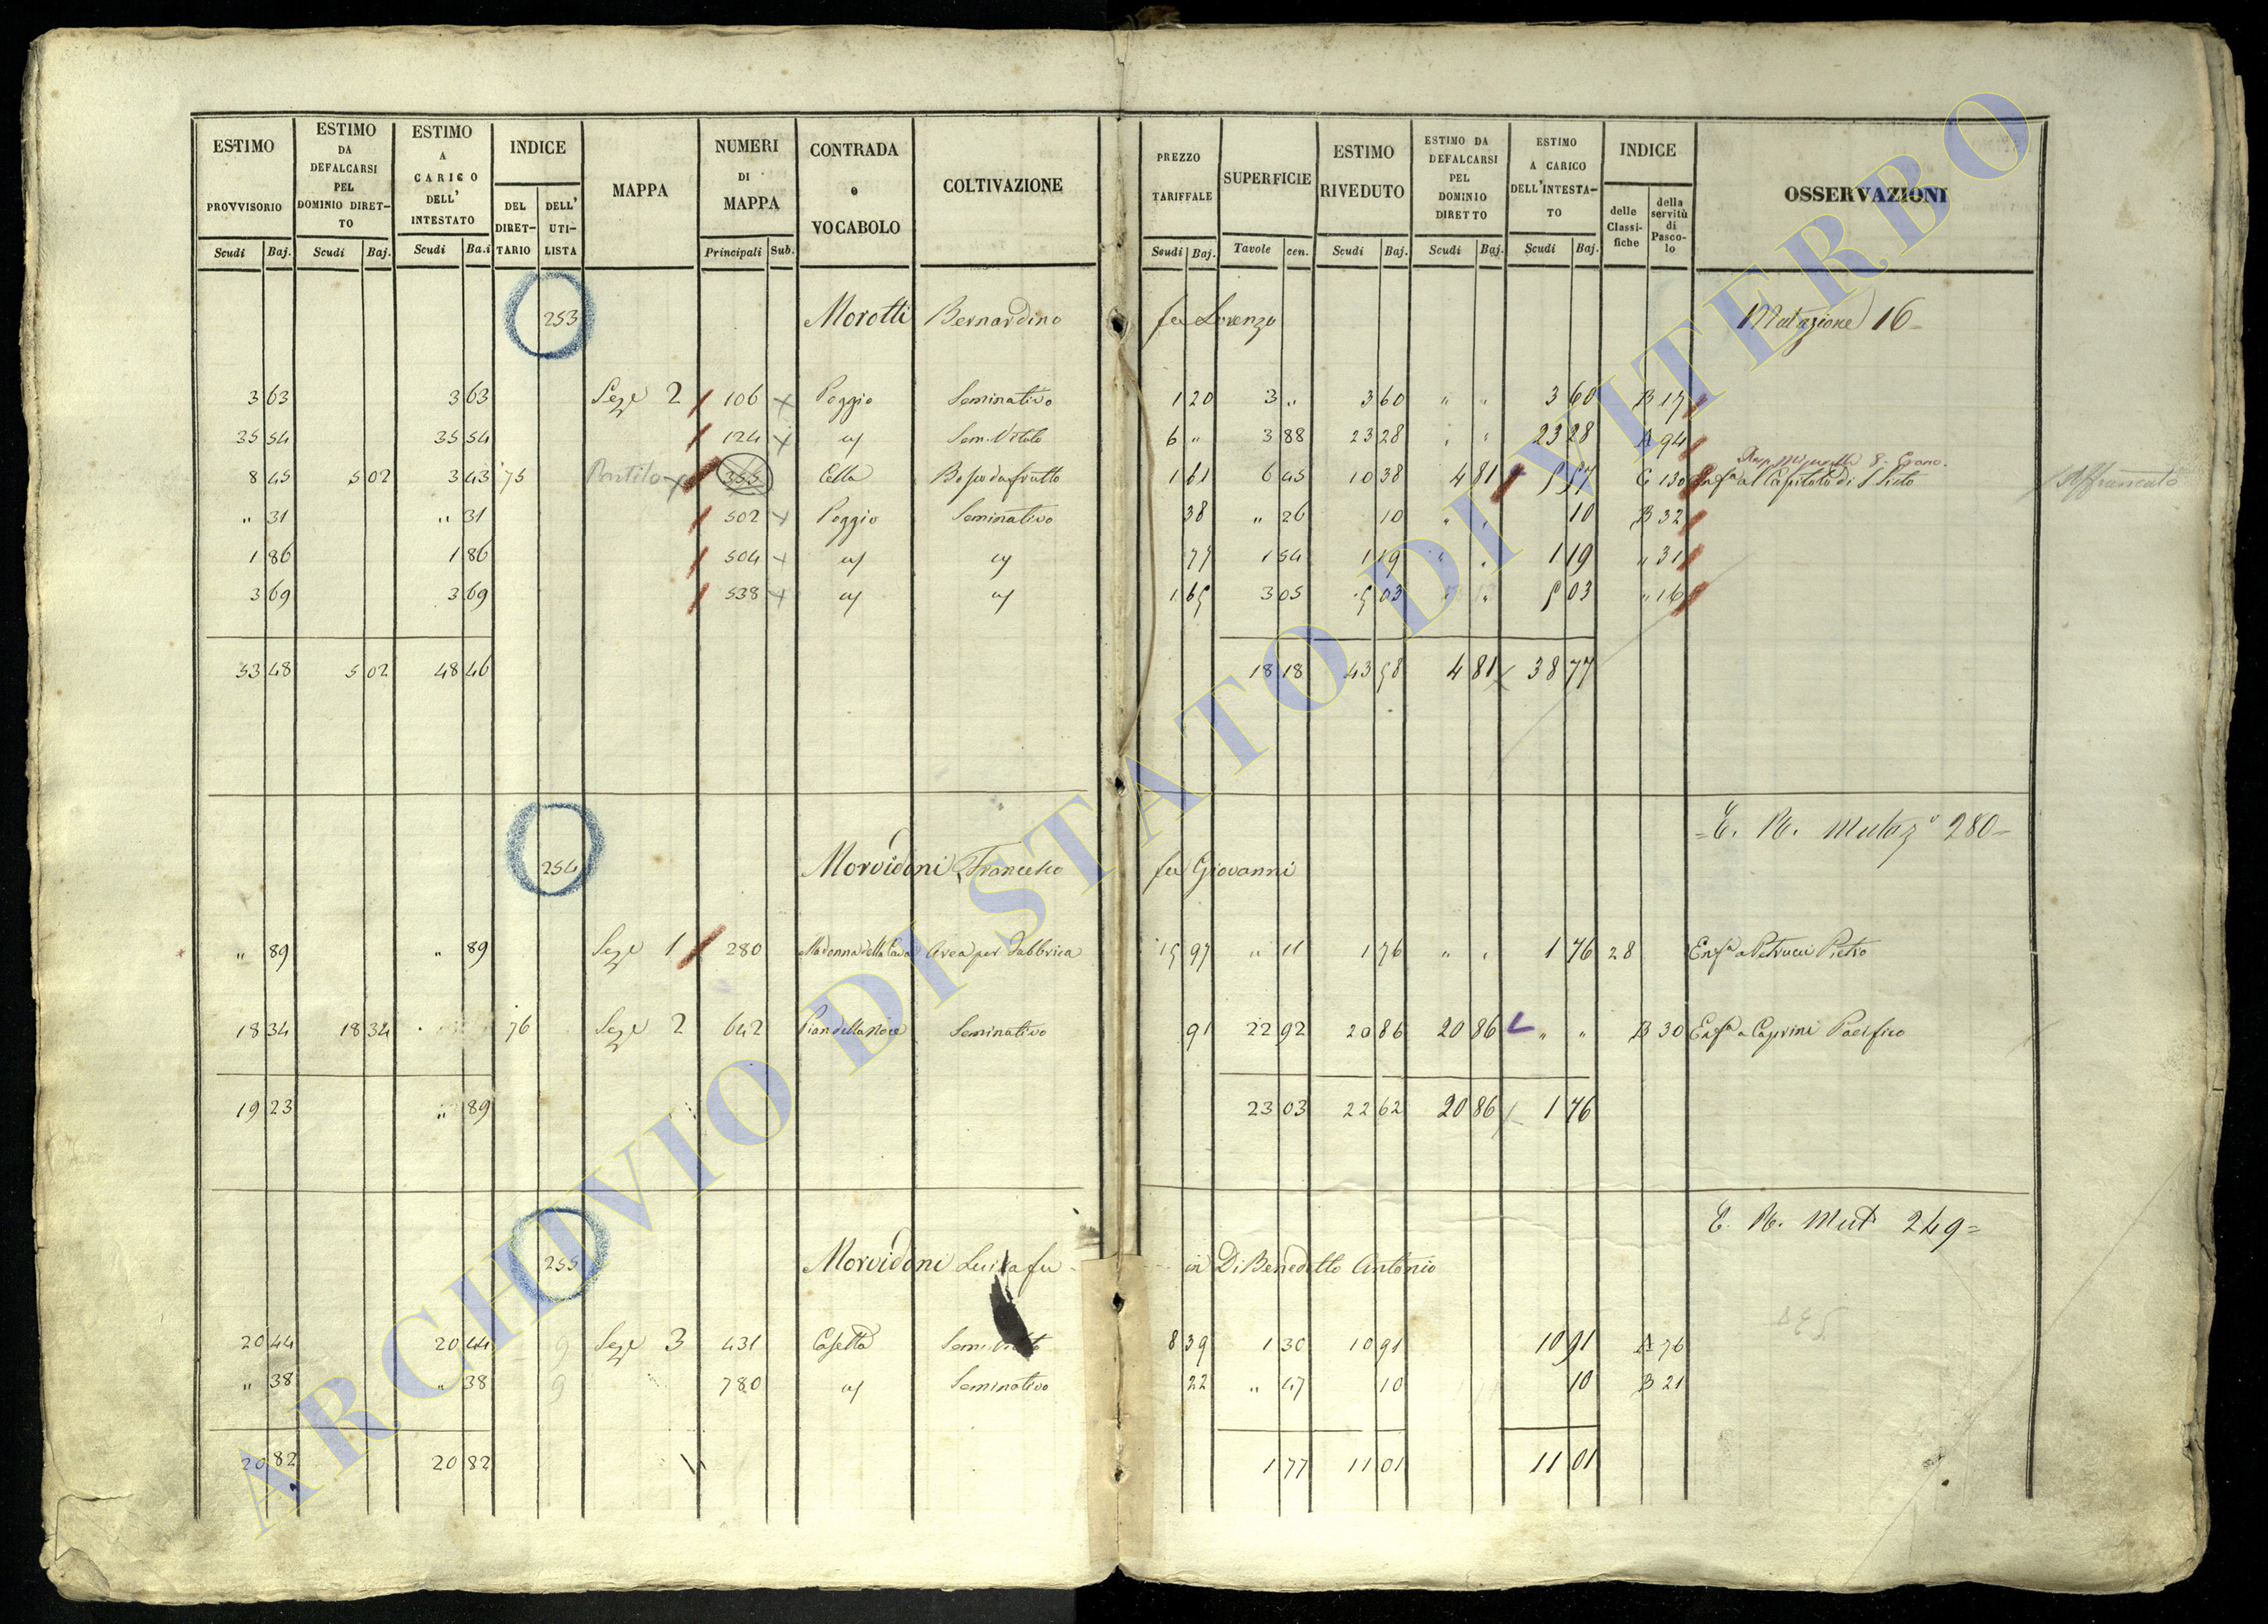 ESTIMO PROVVISORIO Scudi Baj.
ESTIMO DA DEFALCARSI PEL DOMINIO DIRET-TO Scudi Baj.
ESTIMO A CARICO DELL' INTESTATO Scudi Ba.i
INDICE DEL DIRET-TARIO DELL' UTI-LISTA
MAPPA
NUMERI DI MAPPA Principali Sub.
CONTRADA o VOCABOLO
COLTIVAZIONE
PREZZO TARIFFALE Scudi Baj.
SUPERFICIE Tavole cen.
ESTIMO RIVEDUTO Scudi Baj.
ESTIMO DA DEFALCARSI PEL DOMINIO DIRETTO Scudi Baj.
ESTIMO A CARICO DELL'INTESTA-TO Scudi Baj.
INDICE delle Classi-fiche della servitù di Pasco-lo
OSSERVAZIONI
253 Morotti Bernardino fu Lorenzo Mutazione 16
3 63 3 63 Seze 2 106 Poggio Seminativo 1 20 3 " 3 60 " " 3 60 B 17
35 54 35 54 124 Sem. Vitato 6 " 3 88 23 28 " " 23 28 A 94
8 45 5 02 3 43 75 355 Cella Bosco da frutto 1 61 6 45 10 38 4 81 5 57 C 130 Enfa al Capitolo di S Sisto Affrancato
" 31 " 31 502 Poggio Seminativo 38 " 26 10 " " 10 B 32
1 86 1 86 504 77 1 54 1 19 " " 1 19 " 31
3 69 3 69 538 1 65 3 05 5 03 " " 5 03 " 16
53 48 5 02 48 46 18 18 43 58 4 81 38 77
E. R. Mutaze 280
254 Morvidoni Francesco fu Giovanni
" 89 " 89 Seze 1 280 Madonna della Cava Area per Fabbrica 15 97 " 11 1 76 " " 1 76 28 Enfa a Petrucci Pietro
18 34 18 34 76 Seze 2 642 Pian della Noce Seminativo 91 22 92 20 86 20 86 " " B 30 Enfa a Caprini Pacifico
19 23 " 89 23 03 22 62 20 86 1 76
E. R. Mut 249
255 Morvidoni Luisa fu in Di Benedetto Antonio
20 44 20 44 9 Seze 3 431 Casetta Sem. Vitato 8 39 1 30 10 91 10 91 A 76
" 38 " 38 9 780 Seminativo 22 " 47 10 10 B 21
20 82 20 82 1 77 11 01 11 01
ARCHIVIO DI STATO DI VITERBO